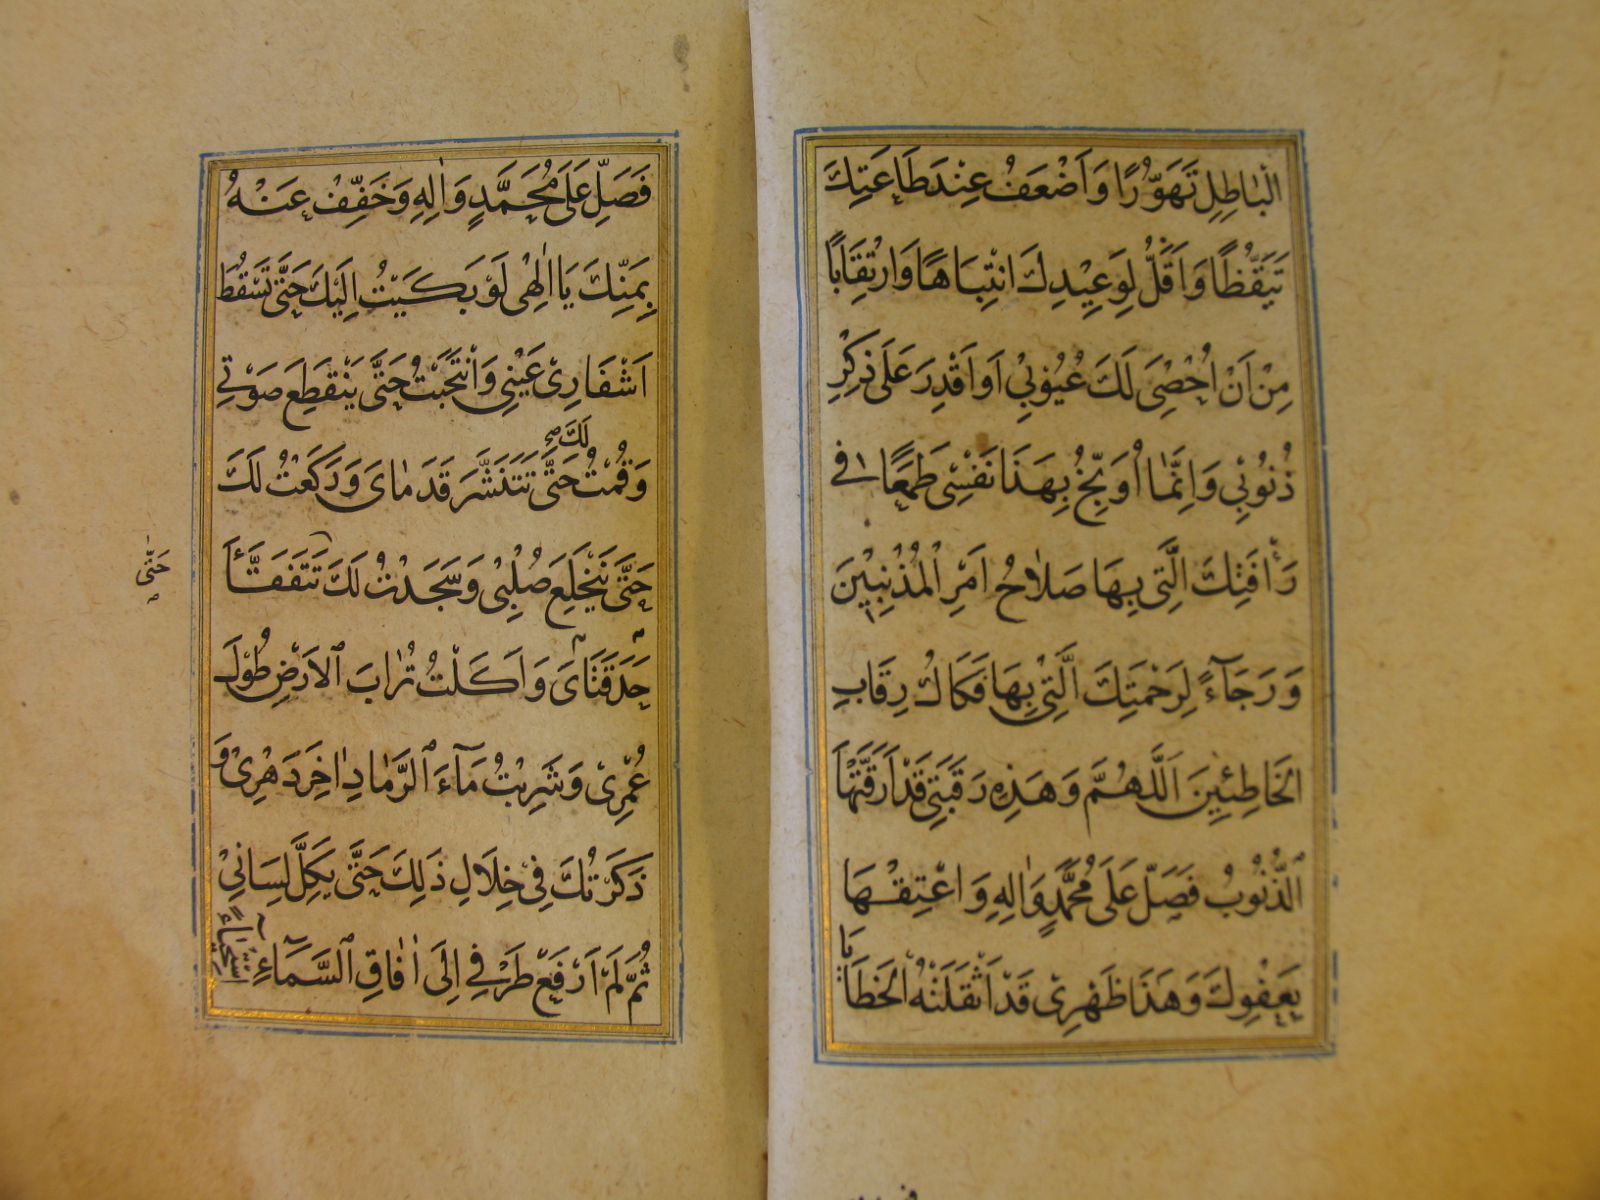 الْبَاطِلِ تَهَوُّرًا وَاَضْعَفُ عِنْدَ طَاعَتِكَ
تَيَقُّظًا وَاَقَلُّ لِوَعِيْدِكَ انْتِبَاهًا وَارْتِقَابًا
مِنْ اَنْ اُحْصِىَ لَكَ عُيُوْبِيْ اَوْ اَقْدِرَ عَلَى ذِكْرِ
ذُنُوْبِيْ وَاِنَّمَا اُوَبِّخُ بِهَذَا نَفْسِىْ طَمَعًا فِى
رَأْفَتِكَ الَّتِى بِهَا صَلَاحُ اَمْرِ الْمُذْنِبِيْنَ
وَرَجَآءً لِرَحْمَتِكَ الَّتِىْ بِهَا فَكَاكُ رِقَابِ
الْخَاطِئِيْنَ اَللَّهُمَّ وَهَذِهِ رَقَبَتِىْ قَدْ اَرَقَّتْهَا
الذُّنُوْبُ فَصَلِّ عَلَى مُحَمَّدٍ وَاٰلِهِ وَاعْتِقْهَا
بِعَفْوِكَ وَهَذَا ظَهْرِىْ قَدْ اَثْقَلَتْهُ الْخَطَايَا
فَصَلِّ عَلَى مُحَمَّدٍ وَاٰلِهِ وَخَفِّفْ عَنْهُ
بِمَنِّكَ يَا اِلٰهِىْ لَوْ بَكَيْتُ اِلَيْكَ حَتَّى تَسْقُطَ
اَشْفَارِىْ عَيْنِى وَانْتَحَبْتُ حَتَّى يَنْقَطِعَ صَوْتِى
لَكَ صح
وَقُمْتُ حَتَّى تَتَنَشَّرَ قَدَمَاىَ وَرَكَعْتُ لَكَ
حَتَّى يَنْخَلِعَ صُلْبِى وَسَجَدْتُ لَكَ تَتَفَقَّأَ
حَتَّى
حَدَقَتَاىَ وَاَكَلْتُ تُرَابَ الْاَرْضِ طُوْلَ
عُمْرِىْ وَشَرِبْتُ مَآءَ الرَّمَادِ اٰخِرَ دَهْرِىْ وَ
ذَكَرْتُكَ فِى خِلَالِ ذَلِكَ حَتَّى يَكِلَّ لِسَانِىْ
ثُمَّ لَمْ اَرْفَعْ طَرْفِى اِلَى اٰفَاقِ السَّمَآءِ اسْتِحْيَآءً